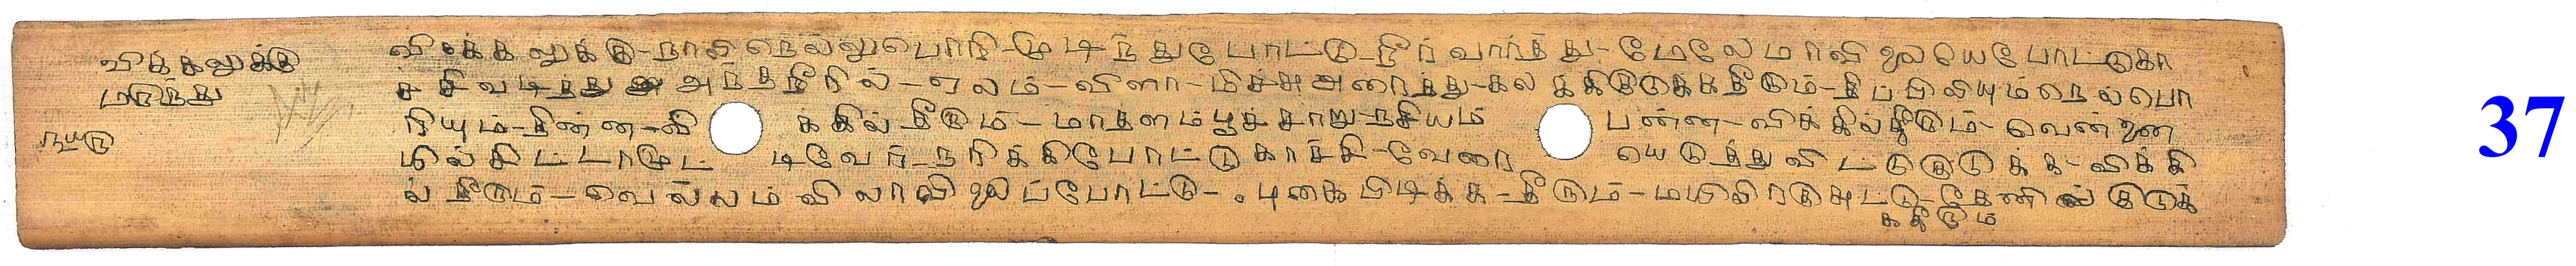 விக்கலுக்கு
மருந்து
விக்கலுக்கு-நாலி நெல்லுபொரி-முடிந்துபோட்டு-நீர்வார்த்து-மேலேமாவிலையைபோட்டுகா
ச்சிவடித்து அந்தநீரில்-ஏலம்-விளா-மிச்சுஅரைத்து-கலக்கிகுடுக்கதீரும்-திப்பிலியும்நெல்பொ
ரியும்-தின்ன-வி க்கில்தீரும்-மாதளம்பூச்சாறு-நசியம் பண்ண-விக்கில்தீரும்-வெண்ணை
யில்கிட்டாமுட் டிவேர்-நரிக்கிபோட்டுகாச்சி-வேரை யெடுத்துவிட்டுகுடுக்க-விக்கி
ல்தீரும்-வெல்லம்விலாவிலைப்போட்டு-புகைபிடிக்க-தீரும்-மயிலிரகுசுட்டு-தேனில்குடுக்
கதீரும்
37